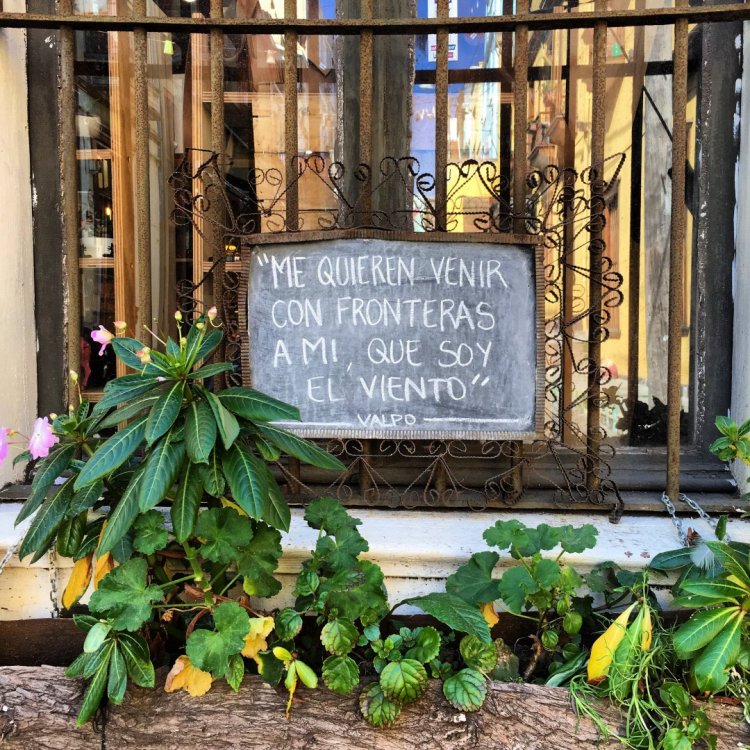 "ME QUIEREN VENIR
CON FRONTERAS
A MI, QUE SOY
EL VIENTO"
VALPO